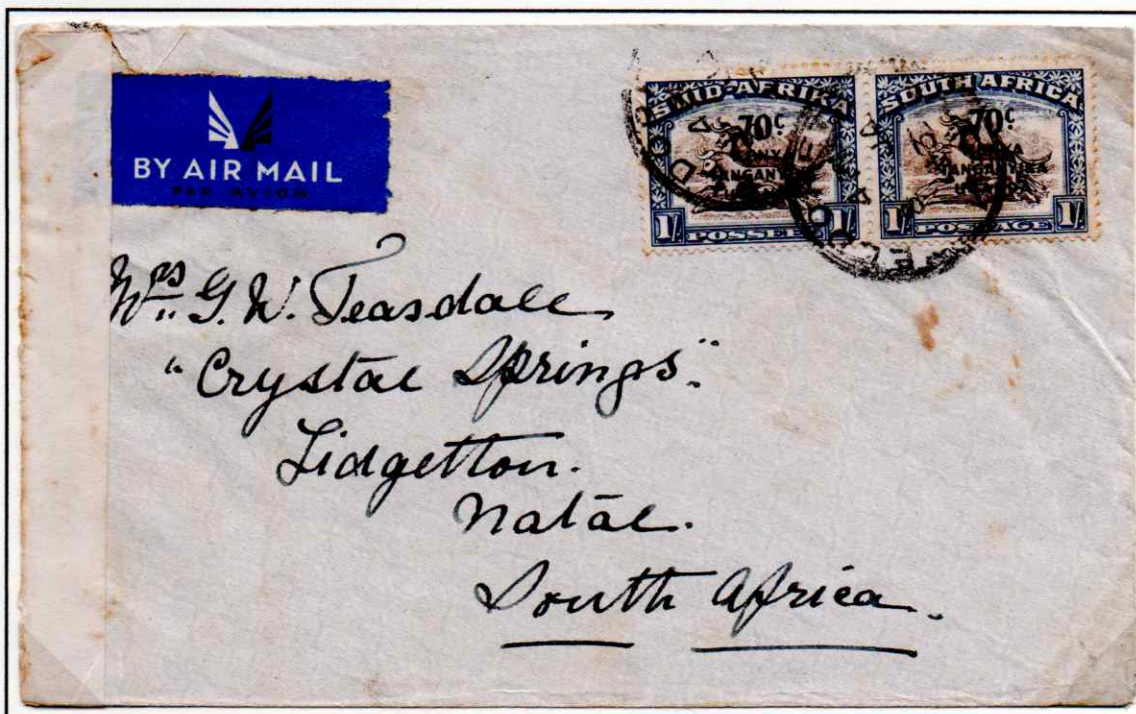 BY AIR MAIL
PAR AVION
SUID-AFRIKA
70c
1/- POSSEEL
SOUTH AFRICA
70c
TANGANYIKA
1/- POSTAGE 1/-
Mrs G. W. Teasdale
"Crystal Springs".
Lidgetton.
Natal.
South Africa.